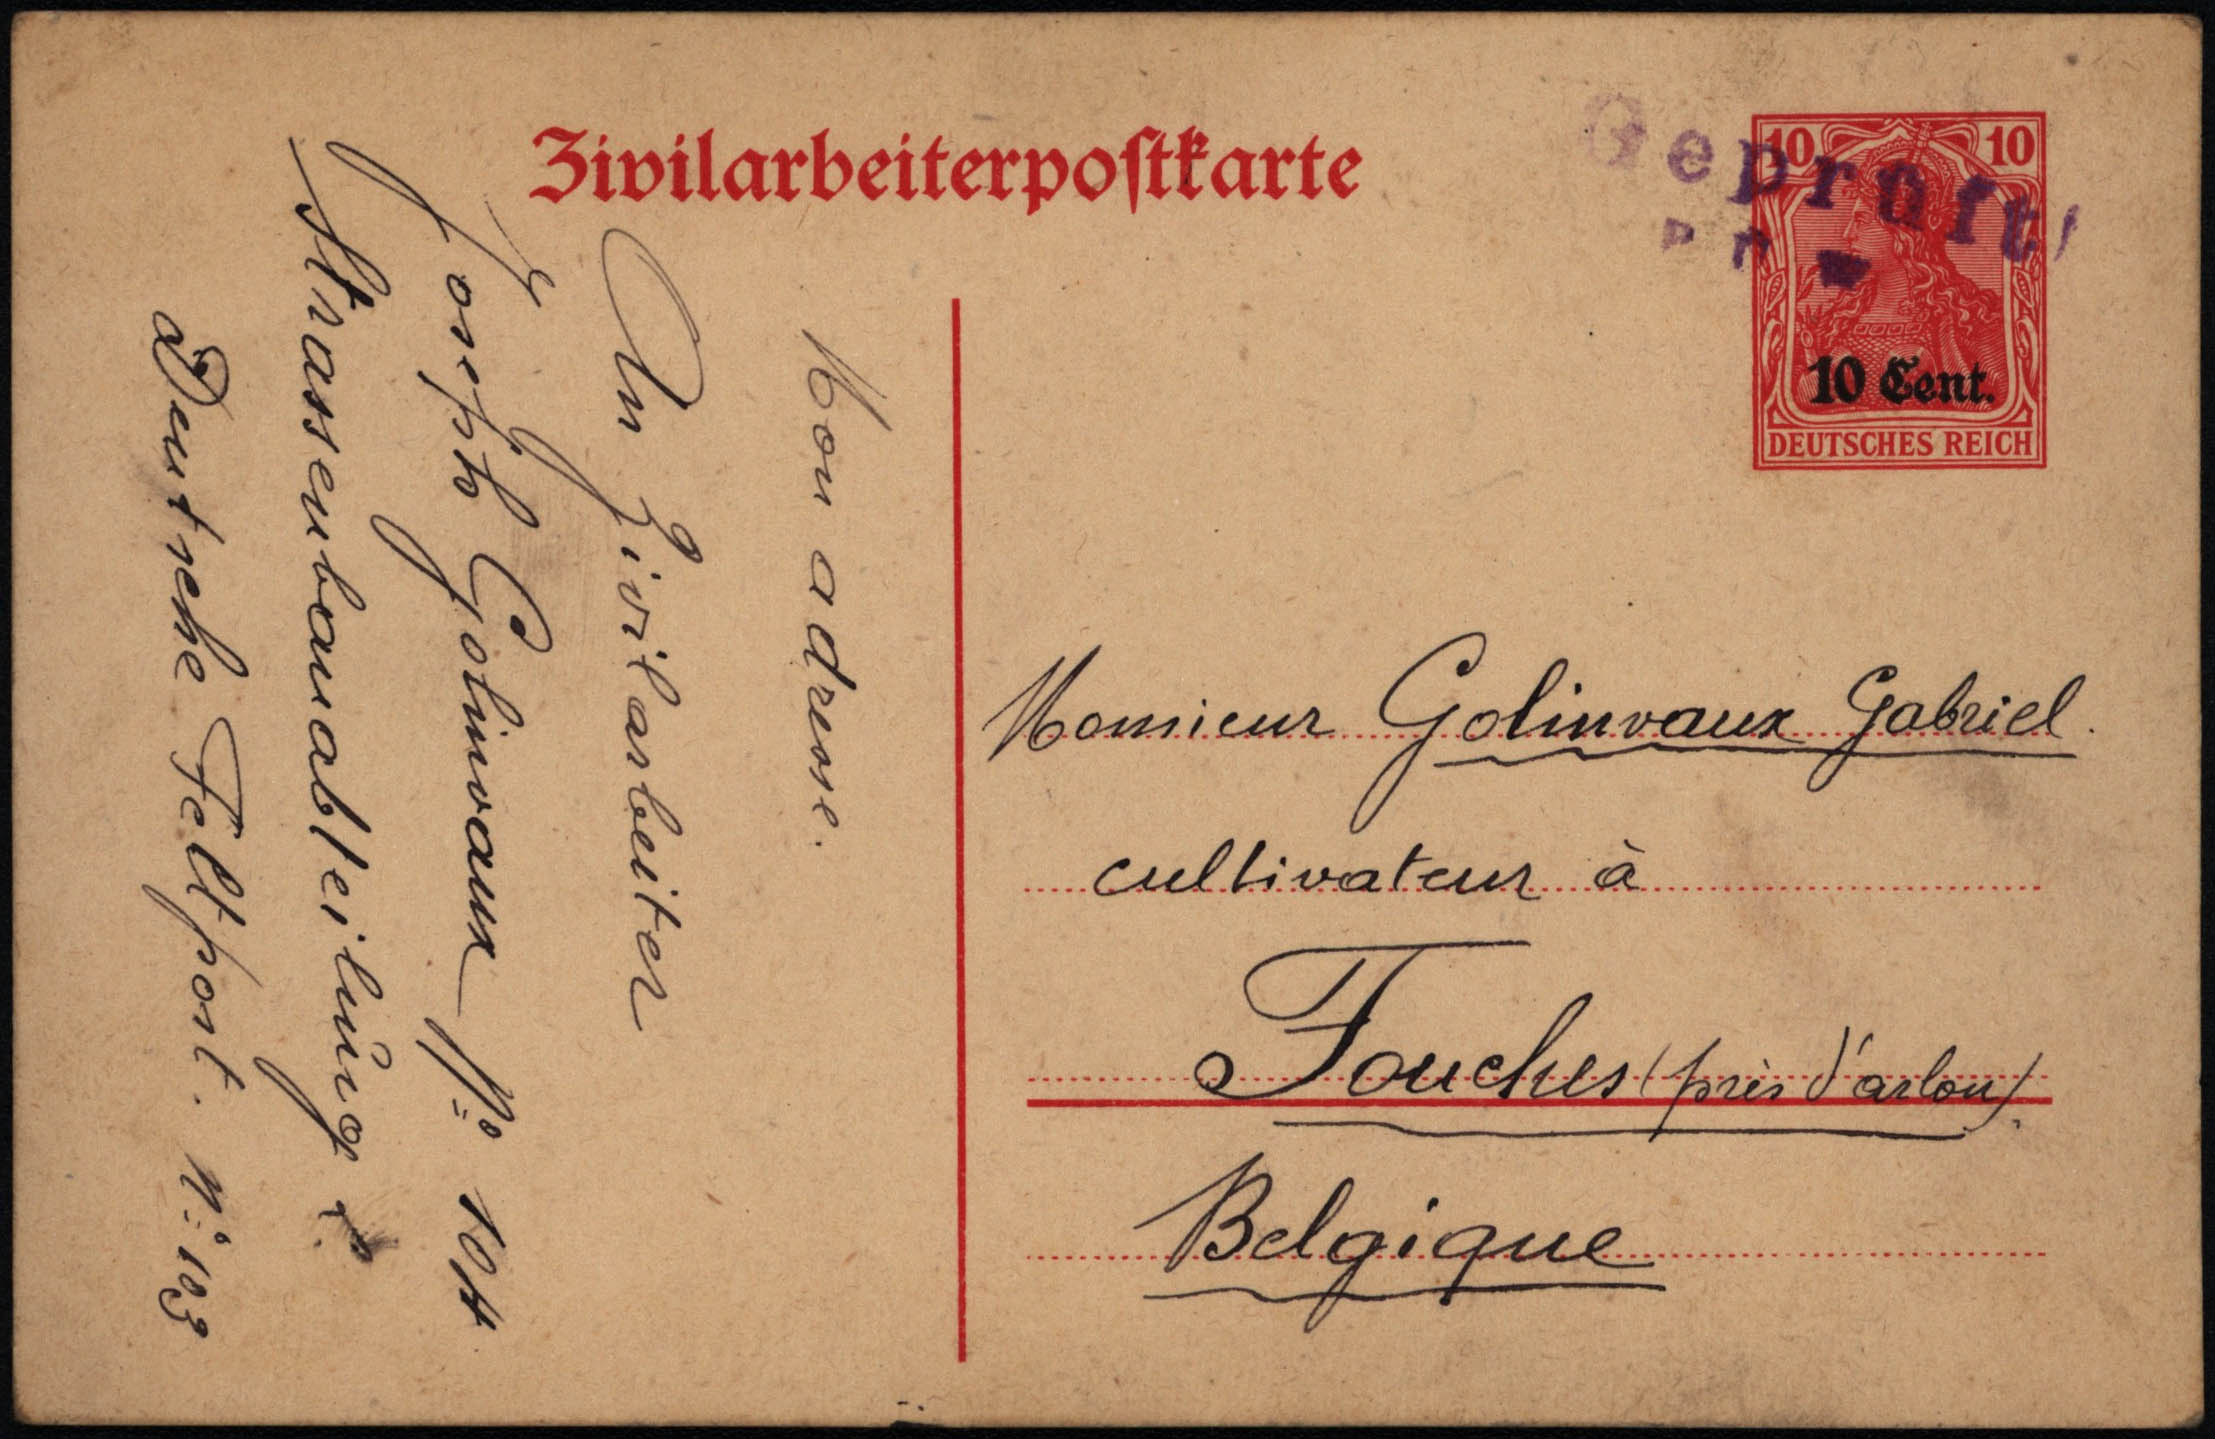 Zivilarbeiterpostkarte
Geprüft
10 10
10 Cent.
DEUTSCHES REICH
Mon adresse.
An Zivilarbeiter
Joseph Golinvaux Nº 104
Strassenbauabteilung
Deutsche Feldpost. Nº 103
Monsieur Golinvaux Gabriel.
cultivateur à
Fouches (près d'arlon).
Belgique